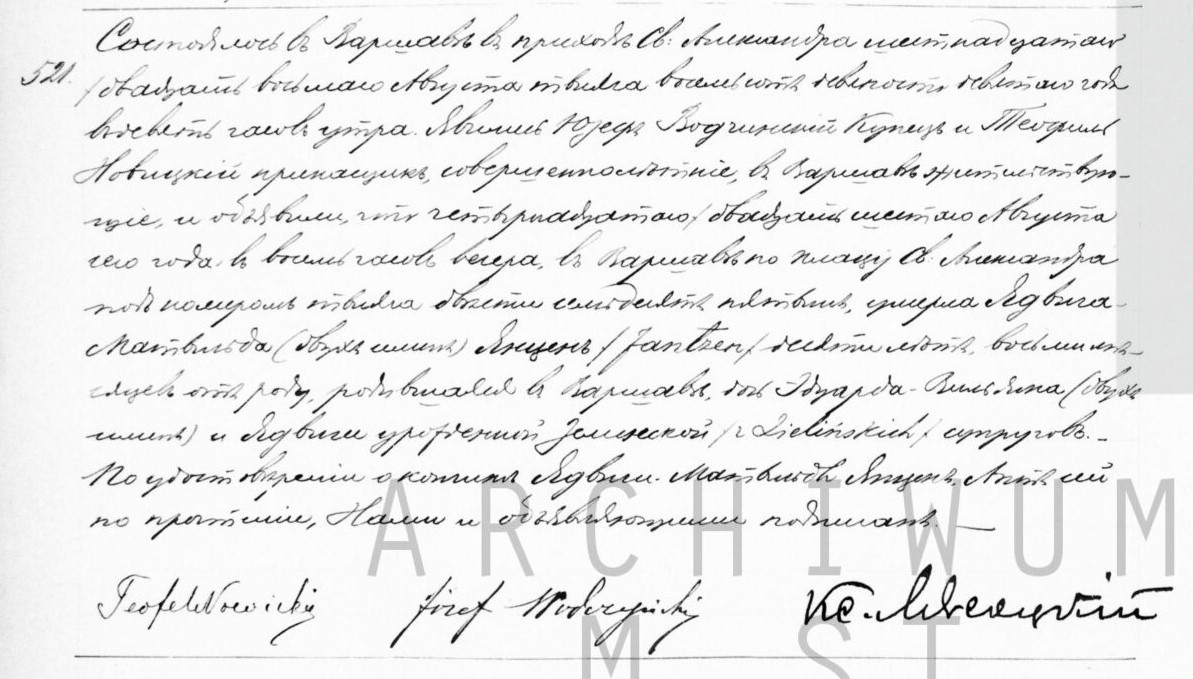 Состоялось въ Варшавѣ въ приходѣ Св: Александра шестнадцатаго
521.
/двадцать восьмаго Августа тысяча восемьсотъ девяносто девятаго года
въ девять часовъ утра. Явились Юзефъ Водчинскій Купецъ и Теофиль
Новицкій прикащикъ, совершеннолѣтніе, въ Варшавѣ жительствую-
щіе, и объявили, что четырнадцатаго/двадцать шестаго Августа
сего года въ восемь часовъ вечера, въ Варшавѣ по плацу Св: Александра
подъ номеромъ тысяча двѣсти семьдесятъ пятымъ, умерла Ядвига-
Матильда (двухъ именъ) Янценъ /Jantzen/ десяти лѣтъ, восьми мѣ-
сяцевъ отъ роду, родившаяся въ Варшавѣ, дочь Эдуарда-Вильяма (двухъ
именъ) и Ядвиги урожденной Зелинской /z Zielińskich/ супруговъ.-
По удостовѣреніи о кончинѣ Ядвиги-Матильды Янценъ Актъ сей
по прочтеніи, Нами и объявляющими подписанъ. —
Teofil Nowicki Józef Wodczyński Кс.
ARCHIWUM
M ST